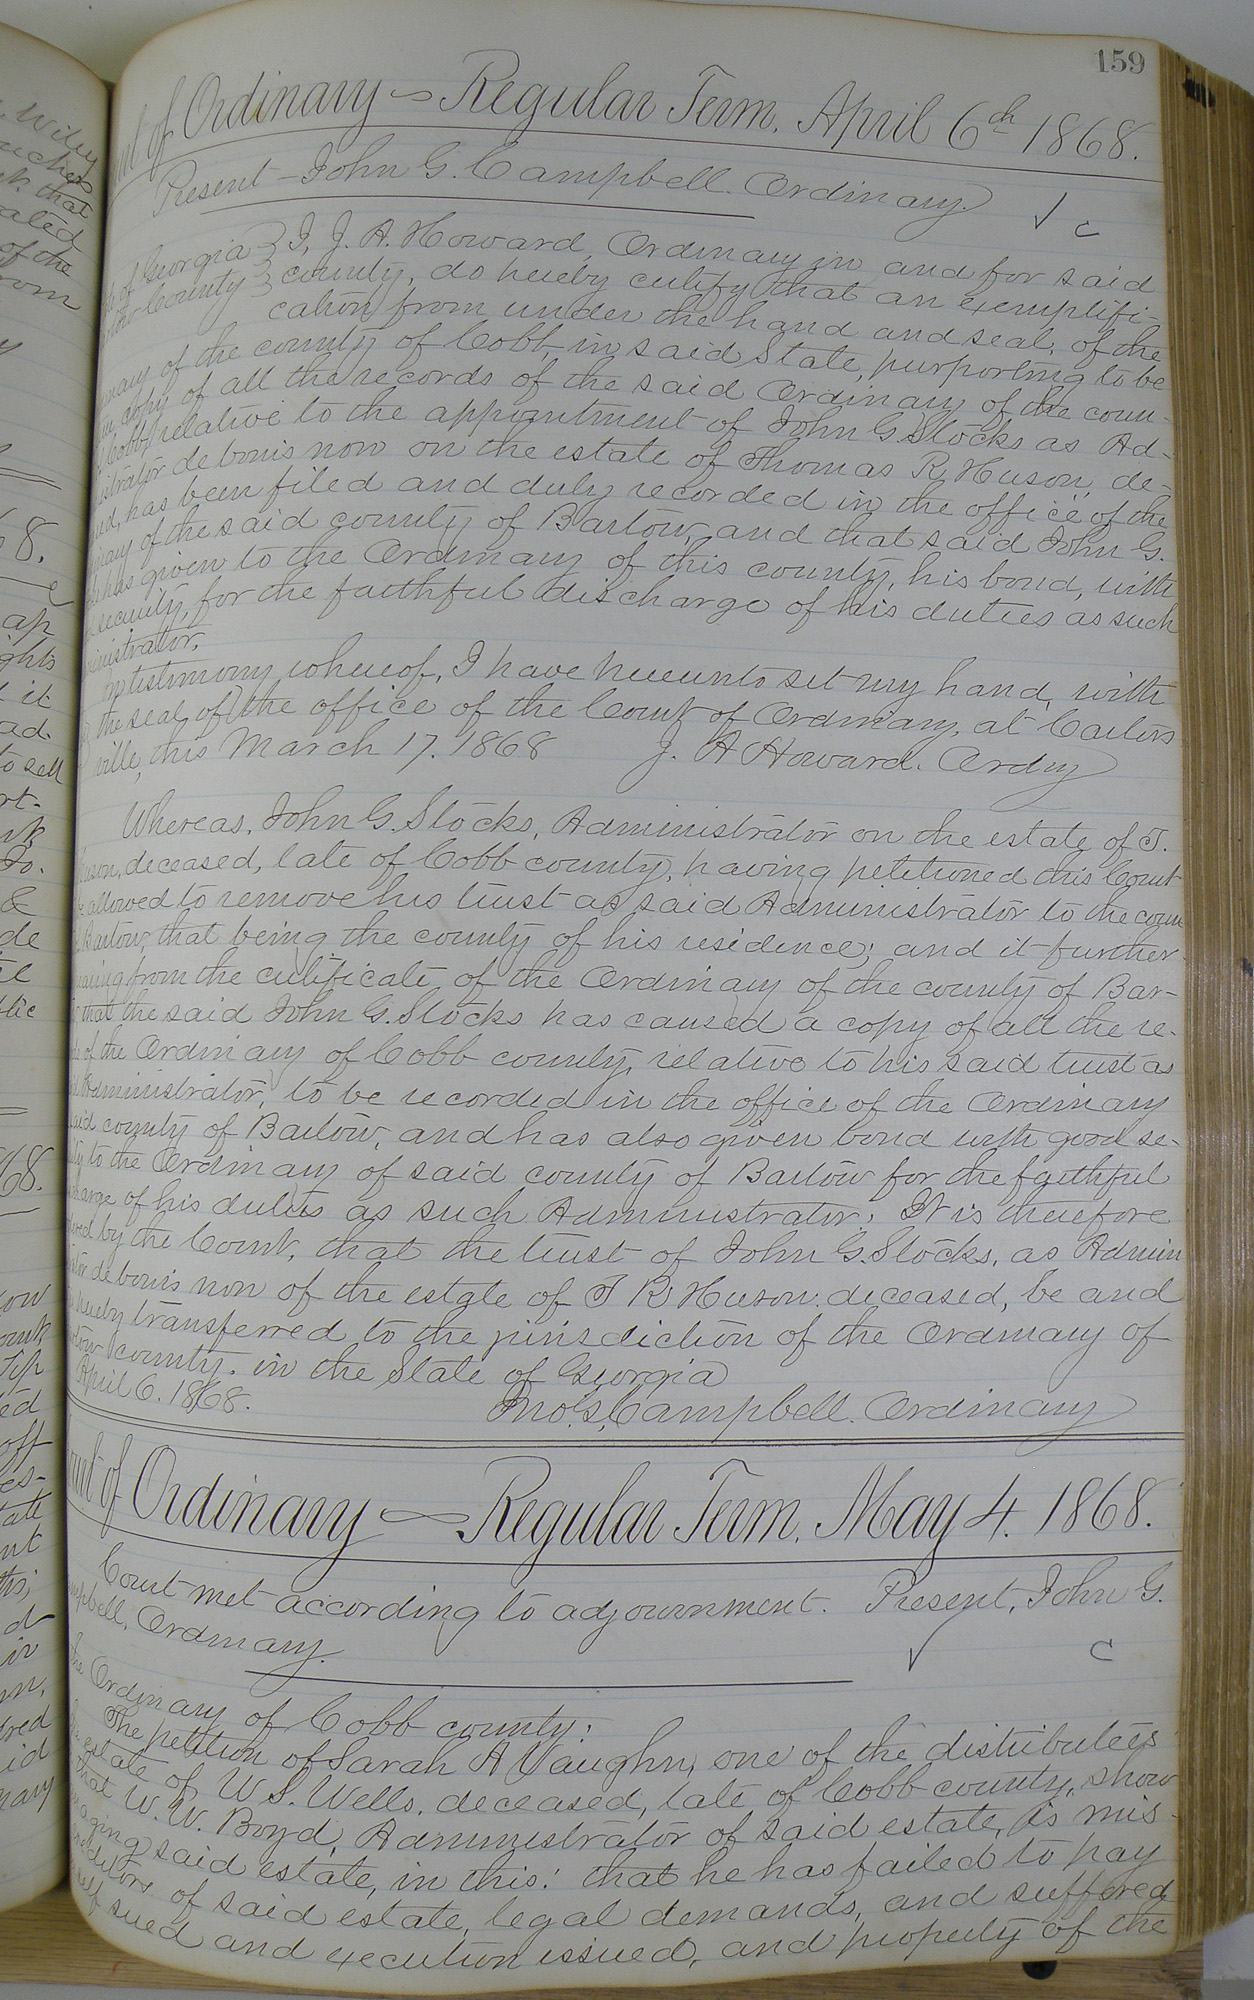 159
of Ordinary ~ Regular Term, April 6th 1868.
Present - John G. Campbell. Ordinary.
of Georgia } I, J. A. Howard, Ordinary in and for said
County } county, do hereby certify that an exemplifi-
cation from under the hand and seal, of the
of the county of Cobb, in said State, purporting to be
copy of all the records of the said Ordinary of the coun-
Cobb, relative to the appointment of John G. Slocks as Ad-
de bonis non on the estate of Thomas R. Huson, de-
has been filed and duly recorded in the office of the
of the said county of Bartow, and that said John G.
has given to the Ordinary of this county, his bond, with
security, for the faithful discharge of his duties as such
In testimony whereof, I have hereunto set my hand, with
the seal of the office of the Court of Ordinary, at Carters
ville, this March 17. 1868 J. A Howard. Ordry
Whereas, John G. Slocks, Administrator on the estate of T.
deceased, late of Cobb county, having petitioned this Court
allowed to remove his trust as said Administrator to the coun
Bartow, that being the county of his residence; and it further
from the certificate of the Ordinary of the county of Bar-
that the said John G. Slocks has caused a copy of all the re-
of the Ordinary of Cobb county, relative to his said trust as
Administrator, to be recorded in the office of the Ordinary
said county of Bartow, and has also given bond with good se-
to the Ordinary of said county of Bartow for the faithful
of his duties as such Administrator; It is therefore
by the Court, that the trust of John G. Slocks, as Admin
de bonis non of the estate of T R. Huson deceased, be and
hereby transferred to the jurisdiction of the Ordinary of
county. in the State of Georgia
April 6. 1868. Jno. G. Campbell. Ordinary
Court of Ordinary ~ Regular Term, May 4. 1868.
Court met according to adjournment. Present, John G.
Ordinary.
Ordinary of Cobb county;
The petition of Sarah A Vaughn, one of the distributees
estate of W S. Wells, deceased, late of Cobb county, show
that W. W. Boyd, Administrator of said estate, is mis-
said estate, in this: that he has failed to pay
of said estate, legal demands, and suffered
sued and execution issued, and property of the